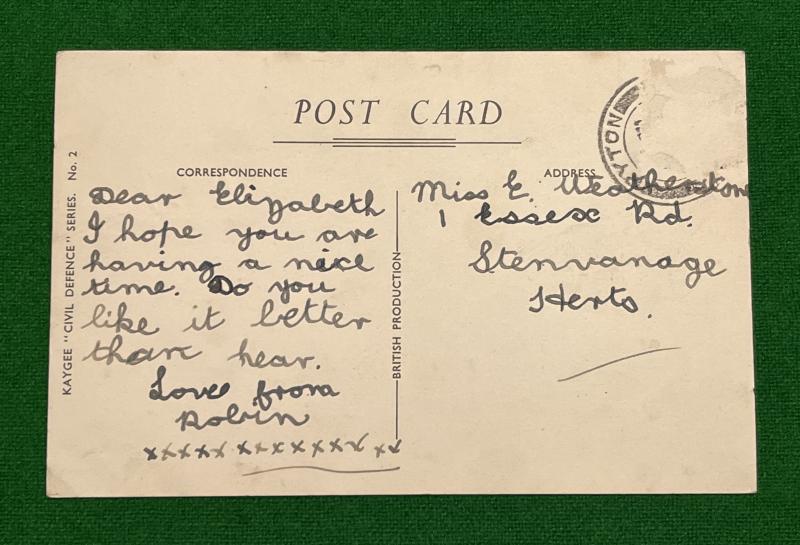 POST CARD
KAYGEE "CIVIL DEFENCE" SERIES. No. 2
CORRESPONDENCE
Dear Elizabeth
I hope you are
having a nice
time. Do you
like it better
than hear.
Love from
Robin
xxxxx xxxxxxx xx
BRITISH PRODUCTION
ADDRESS
YTON
Miss E. Weatherstone
1 Essex Rd.
Stenvanage
Herts.